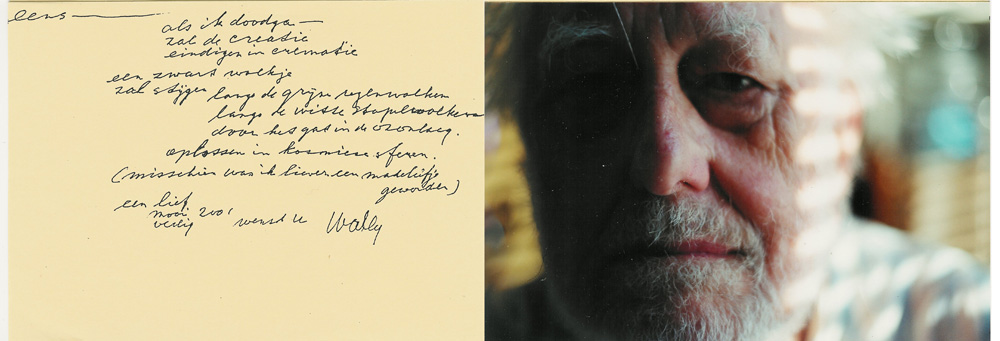 eens
als ik doodga —
zal de creatie
eindigen in crematie
een zwart wolkje
zal stijgen langs de grijze regenwolken
langs de witte stapelwolken
door het gat in de ozonlaag.
oplossen in kosmiese sferen.
(misschien was ik liever een madeliefje
geworden)
een lief
mooi 2001
veilig wenst u Wally